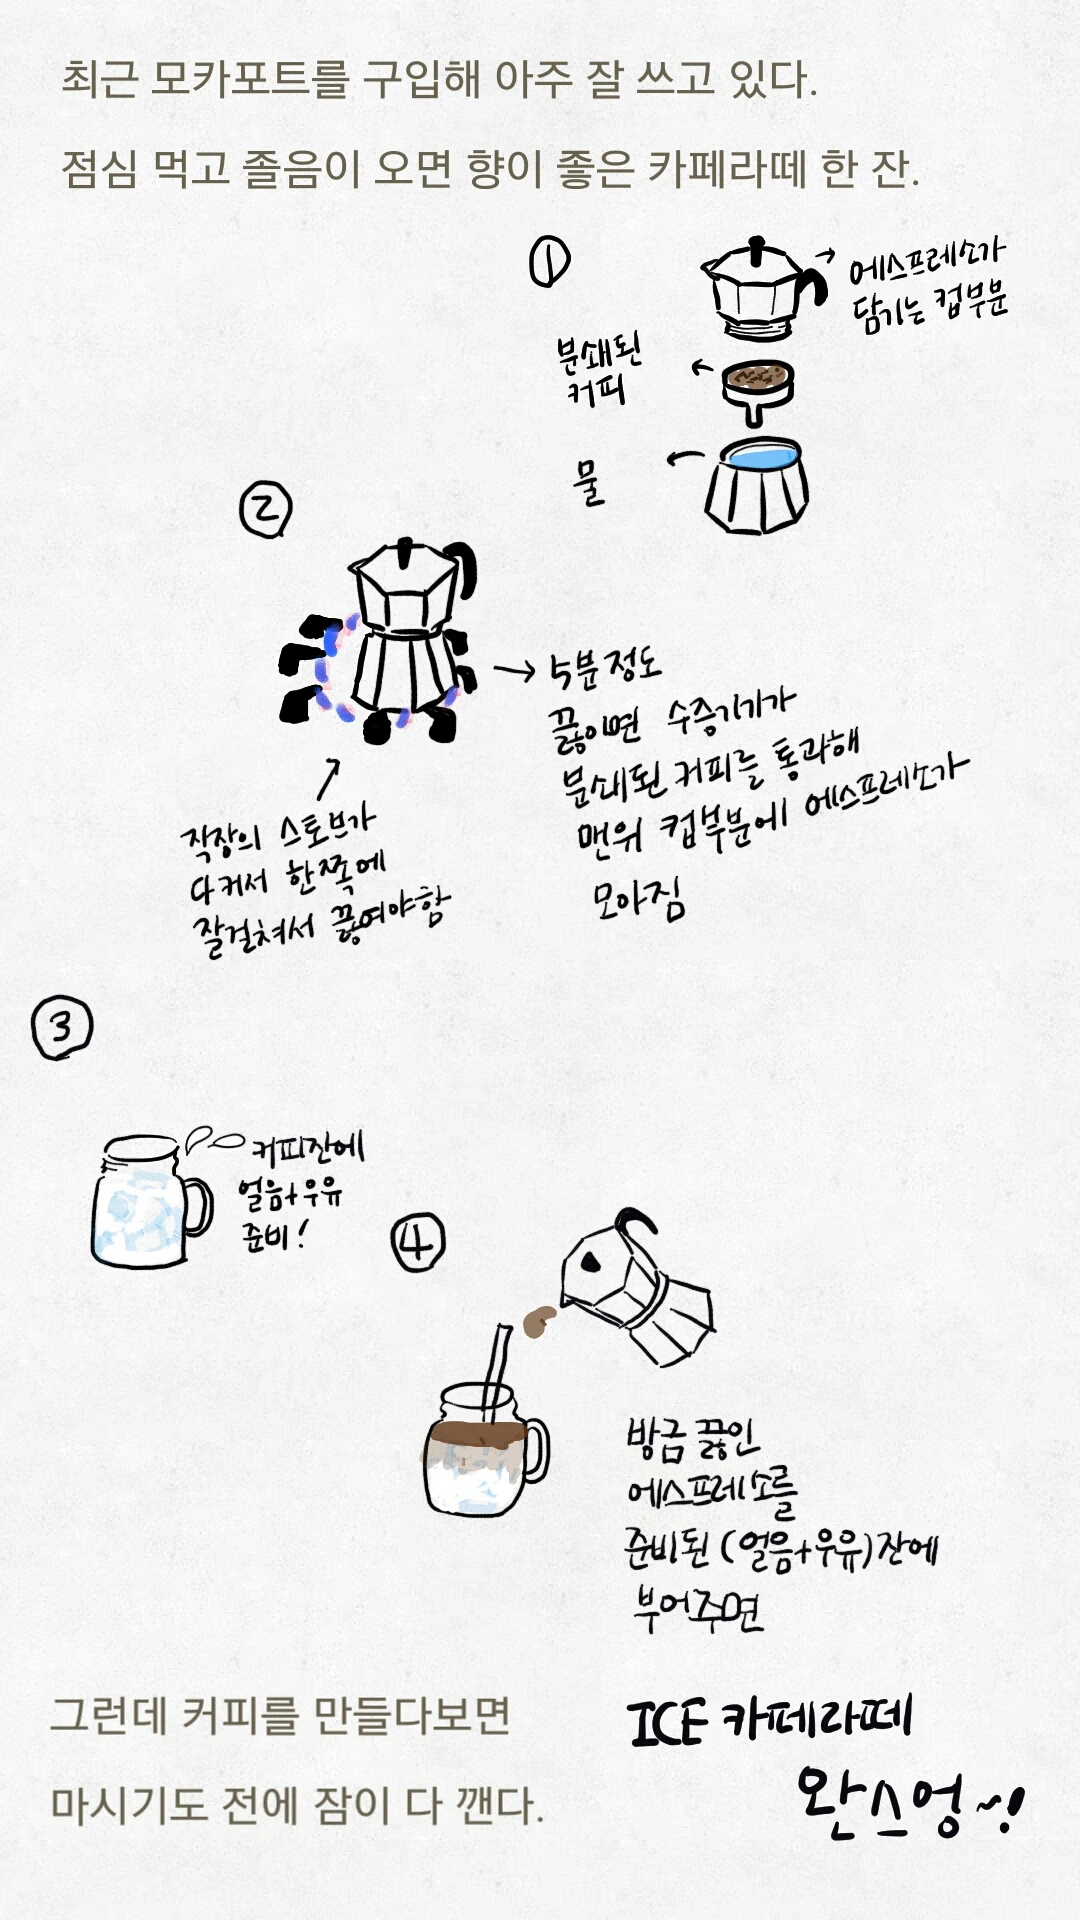 최근 모카포트를 구입해 아주 잘 쓰고 있다.
점심 먹고 졸음이 오면 향이 좋은 카페라떼 한 잔.
①
에스프레소가
담기는 컵부분
분쇄된
커피
물
②
5분정도
끓이면 수증기기가
분쇄된 커피를 통과해
맨위 컵부분에 에스프레소가
모아짐
직장의 스토브가
다커서 한쪽에
잘걸쳐서 끓여야함
③
커피잔에
얼음+우유
준비!
④
방금 끓인
에스프레소를
준비된 (얼음+우유)잔에
부어주면
ICE 카페라떼
완스엉~!
그런데 커피를 만들다보면
마시기도 전에 잠이 다 깬다.